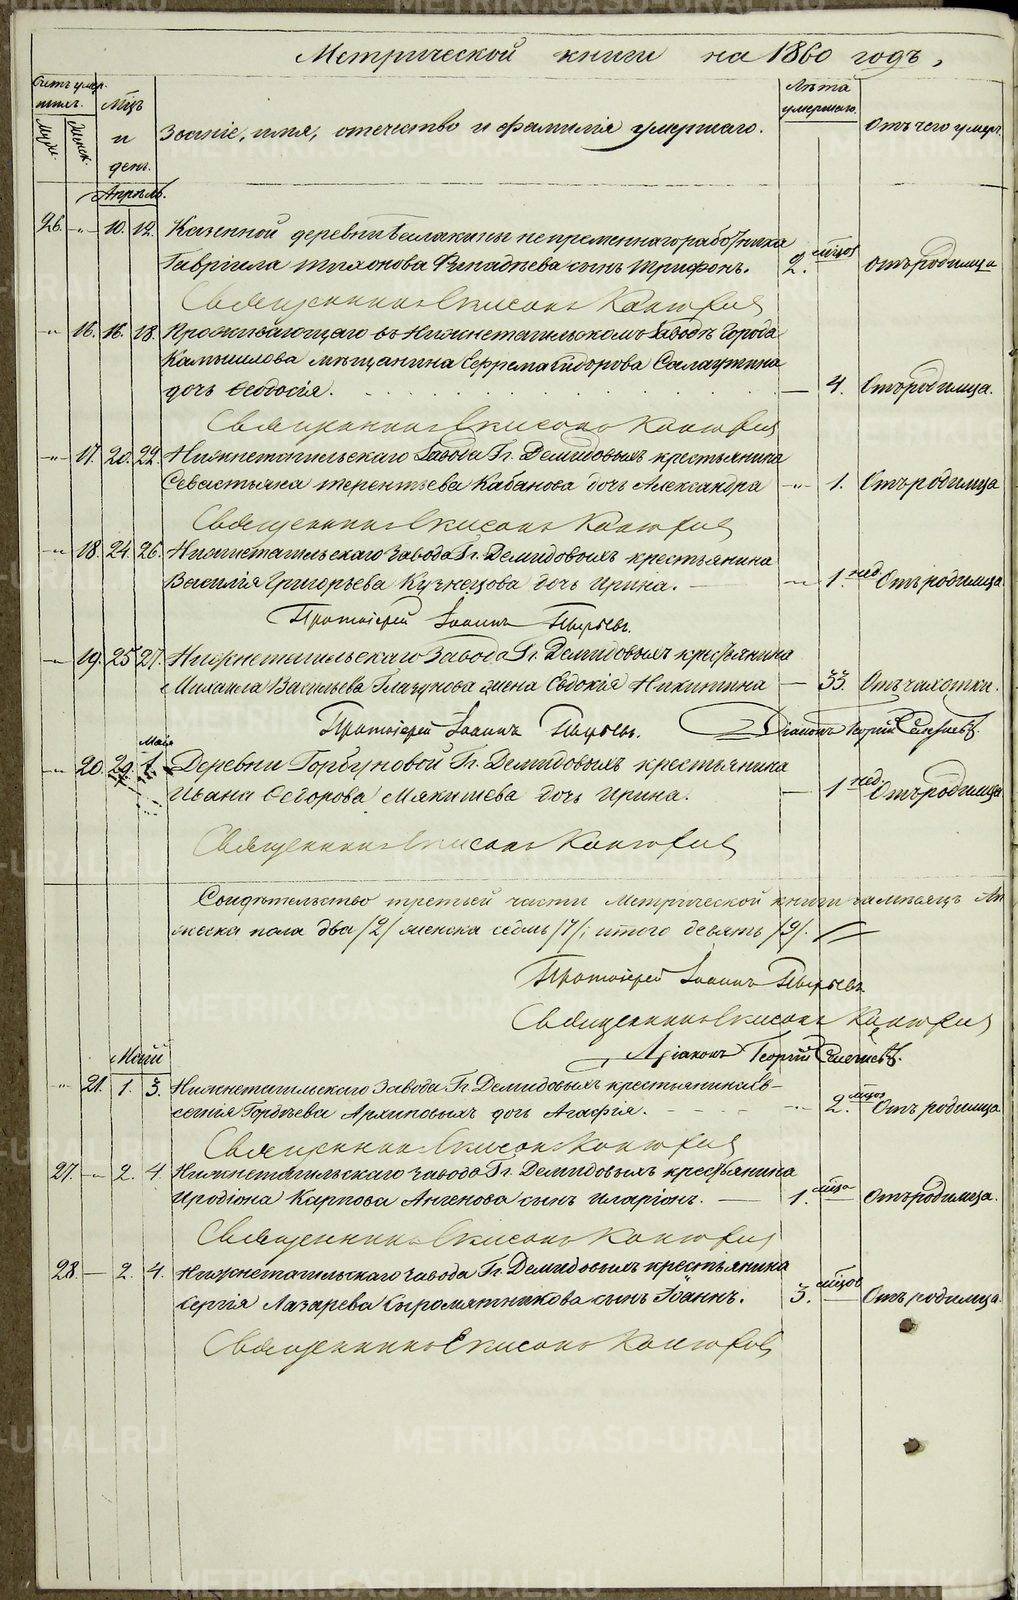 Метрической книги на 1860 годъ,
Счетъ умер-
шихъ.
Муж.
Женск.
Мцъ
и
день.
Званіе, имя, отечество и фамилія умершаго.
Лѣта
умершаго.
Отъ чего умеръ.
Апрѣль.
26. " 10. 12. Казенной деревни Балакины непременнаго работника
Гавріила Тихонова сынъ Трифонъ. 2. мцов отъ родимца
Священникъ
" 16. 16. 18. Проживающаго въ Нижнетагильскомъ Заводѣ Города
Камышлова мѣщанина Ефрема Сидорова
дочь Ѳеодосія. 4. Отъ родимца.
Священникъ
" 17. 20. 22. Нижнетагильскаго Завода Гг. Демидовыхъ крестьянина
Севастьяна Терентьева Кабанова дочь Александра " 1. Отъ родимца
Священникъ
" 18. 24. 26. Нижнетагильскаго Завода Гг. Демидовыхъ крестьянина
Василія Григорьева Кузнецова дочь Ирина. 1 нед. Отъ родимца
Протоіерей Іоаннъ
" 19. 25 27. Нижнетагильскаго Завода Гг. Демидовыхъ крестьянина
Михаила Васильева Глазунова жена Евдокія Никитина 33. Отъ чахотки.
Протоіерей Іоаннъ Діаконъ Георгій
Мая
" 20. 29. 1. Деревни Горбуновой Гг. Демидовыхъ крестьянина
Ивана Ѳедорова Мякишева дочь Ирина. 1 нед. Отъ родимца
Священникъ
Свидѣтельство третьей части Метрической книги
пола два /2/ женска седмь /7/; итого девять /9/.
Протоіерей Іоаннъ
Священникъ
Діаконъ Георгій
Маій
" 21. 1. 3. Нижнетагильскаго Завода Гг. Демидовыхъ крестьянина
Гордѣева Архиповыхъ дочь Агафія. 2. мцов Отъ родимца
Священникъ
27. " 2. 4. Нижнетагильскаго Завода Гг. Демидовыхъ крестьянина
Иродіона Карпова сынъ Иларіонъ. 1. мца Отъ родимца.
Священникъ
28. 2. 4. Нижнетагильскаго Завода Гг. Демидовыхъ крестьянина
Сергія Лазарева Сыромятникова сынъ Іоаннъ. 3. мцов Отъ родимца.
Священникъ
METRIKI.GASO-URAL.RU